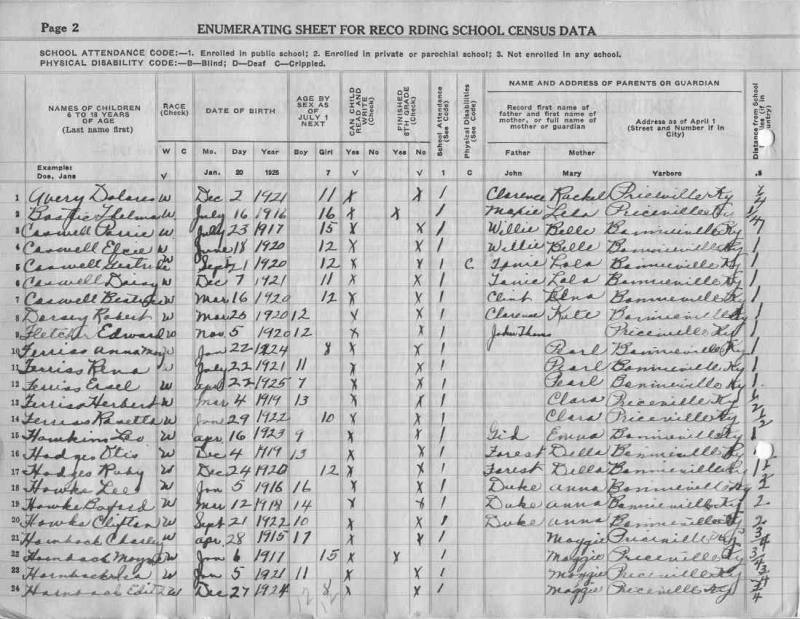 Page 2
ENUMERATING SHEET FOR RECO RDING SCHOOL CENSUS DATA
SCHOOL ATTENDANCE CODE:—1. Enrolled in public school; 2. Enrolled in private or parochial school; 3. Not enrolled in any school.
PHYSICAL DISABILITY CODE:—B—Blind; D—Deaf C—Crippled.
NAMES OF CHILDREN 6 TO 18 YEARS OF AGE (Last name first) RACE (Check) W C DATE OF BIRTH Mo. Day Year AGE BY SEX AS OF JULY 1 NEXT Boy Girl CAN CHILD READ AND WRITE (Check) Yes No FINISHED 8TH GRADE (Check) Yes No School Attendance (See Code) Physical Disabilities (See Code) NAME AND ADDRESS OF PARENTS OR GUARDIAN Record first name of father and first name of mother, or full name of mother or guardian Father Mother Address as of April 1 (Street and Number if in City) Distance from School
Example: Doe, Jane V Jan. 20 1925 7 V V 1 C John Mary Yarboro .5
1 Avery Dolores W Dec 2 1921 11 X X 1 Clarence Rachel Priceville Ky
2 Thelma W July 16 1916 16 X X 1 Lela Priceville Ky
3 Caswell W July 23 1917 15 X X 1 Willie Belle Bonnieville Ky 1
4 Caswell Elsie W June 18 1920 12 X X 1 Willie Belle Bonnieville Ky 1
5 Caswell W Sept 1 1920 12 X X 1 C Lola Bonnieville Ky 1
6 Caswell Daisy W Dec 7 1921 11 X X 1 Lola Bonnieville Ky 1
7 Caswell W Mar 16 1920 12 X X 1 Clint Edna Bonnieville Ky 1
8 Dorsey Robert W Mar 20 1920 12 X X 1 Clarence Kate Bonnieville Ky 1
9 Fletcher Edward W Nov 5 1920 12 X X 1 John Thomas Priceville Ky 1
10 Ferriss Anna May W Jan 22 1924 8 X X 1 Pearl Bonnieville Ky 1
11 Ferriss Rena W July 22 1921 11 X X 1 Pearl Bonnieville Ky 1
12 Ferriss W Apr 22 1925 7 X X 1 Pearl Bonnieville Ky 1
13 Ferriss Herbert W Mar 4 1919 13 X X 1 Clara Priceville Ky
14 Ferriss Rosetta W Jan 29 1922 10 X X 1 Clara Priceville Ky
15 Hawkins Leo W Apr 16 1923 9 X X 1 Gid Emma Bonnieville Ky
16 Hodges Otis W Dec 4 1919 13 X X 1 Forest Della Bonnieville Ky
17 Hodges Ruby W Dec 24 1920 12 X X 1 Forest Della Bonnieville Ky
18 Hawks Lee W Jan 5 1916 16 X X 1 Duke Anna Bonnieville Ky
19 Hawks W Mar 12 1918 14 X X 1 Duke Anna Bonnieville Ky 2
20 Hawks Clifton W Sept 21 1922 10 X X 1 Duke Anna Bonnieville Ky 2
21 Hornback Charley W Apr 28 1915 17 X X 1 Maggie Priceville Ky
22 Hornback W Jan 6 1917 15 X X 1 Maggie Priceville Ky
23 Hornback W Jan 5 1921 11 X X 1 Maggie Priceville Ky
24 Hornback W Dec 27 1924 8 X X 1 Maggie Priceville Ky